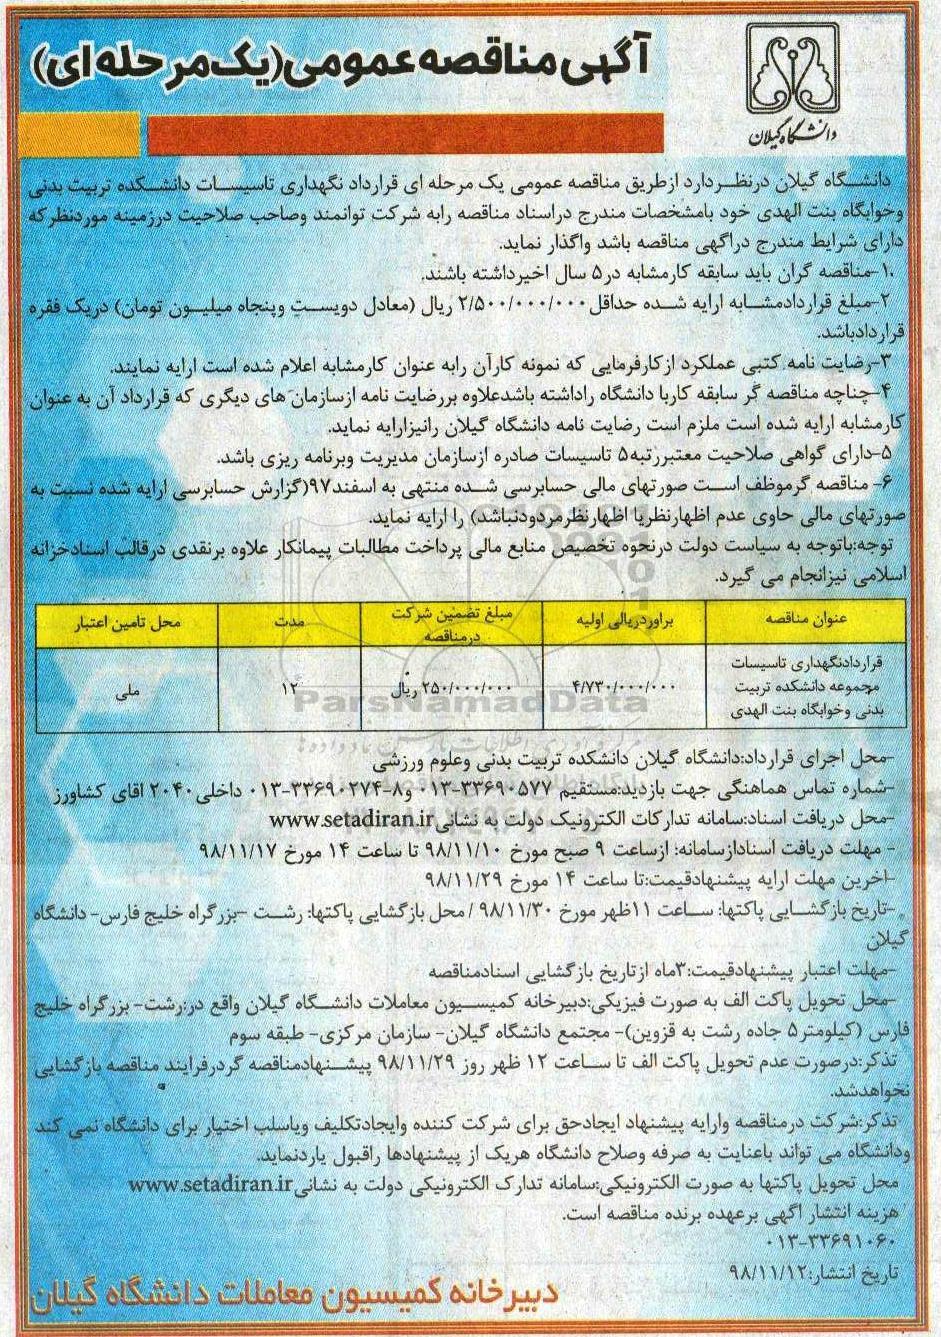 آگهی مناقصه عمومی(یک مرحله ای)
دانشگاه گیلان
دانشگاه گیلان درنظردارد ازطریق مناقصه عمومی یک مرحله ای قرارداد نگهداری تاسیسات دانشکده تربیت بدنی
وخوابگاه بنت الهدی خود بامشخصات مندرج دراسناد مناقصه رابه شرکت توانمند وصاحب صلاحیت درزمینه موردنظرکه
دارای شرایط مندرج دراگهی مناقصه باشد واگذار نماید.
۱-مناقصه گران باید سابقه کارمشابه در۵ سال اخیرداشته باشند.
۲-مبلغ قراردادمشابه ارایه شده حداقل۲/۵۰۰/۰۰۰/۰۰۰ ریال (معادل دویست وپنجاه میلیون تومان) دریک فقره
قراردادباشد.
۳-رضایت نامه کتبی عملکرد ازکارفرمایی که نمونه کارآن رابه عنوان کارمشابه اعلام شده است ارایه نمایند.
۴-چناچه مناقصه گر سابقه کاربا دانشگاه راداشته باشدعلاوه بررضایت نامه ازسازمان های دیگری که قرارداد آن به عنوان
کارمشابه ارایه شده است ملزم است رضایت نامه دانشگاه گیلان رانیزارایه نماید.
۵-دارای گواهی صلاحیت معتبررتبه۵ تاسیسات صادره ازسازمان مدیریت وبرنامه ریزی باشد.
۶- مناقصه گرموظف است صورتهای مالی حسابرسی شده منتهی به اسفند۹۷(گزارش حسابرسی ارایه شده نسبت به
صورتهای مالی حاوی عدم اظهارنظریا اظهارنظرمردودنباشد) را ارایه نماید.
توجه:باتوجه به سیاست دولت درنحوه تخصیص منابع مالی پرداخت مطالبات پیمانکار علاوه برنقدی درقالب اسنادخزانه
اسلامی نیزانجام می گیرد.
عنوان مناقصه	براوردریالی اولیه	مبلغ تضمین شرکت درمناقصه	مدت	محل تامین اعتبار
قراردادنگهداری تاسیسات
مجموعه دانشکده تربیت	۴/۷۳۰/۰۰۰/۰۰۰	۲۵۰/۰۰۰/۰۰۰ ریال	۱۲	ملی
بدنی وخوابگاه بنت الهدی
ParsNamadData
-محل اجرای قرارداد:دانشگاه گیلان دانشکده تربیت بدنی وعلوم ورزشی
-شماره تماس هماهنگی جهت بازدید:مستقیم ۳۳۶۹۰۵۷۷-۰۱۳ و۸-۳۳۶۹۰۲۷۴-۰۱۳ داخلی۲۰۴۰ اقای کشاورز
-محل دریافت اسناد:سامانه تدارکات الکترونیک دولت به نشانیwww.setadiran.ir
- مهلت دریافت اسنادازسامانه: ازساعت ۹ صبح مورخ ۹۸/۱۱/۱۰ تا ساعت ۱۴ مورخ ۹۸/۱۱/۱۷
-اخرین مهلت ارایه پیشنهادقیمت:تا ساعت ۱۴ مورخ ۹۸/۱۱/۲۹
-تاریخ بازگشایی پاکتها: ساعت ۱۱ظهر مورخ ۹۸/۱۱/۳۰ / محل بازگشایی پاکتها: رشت -بزرگراه خلیج فارس- دانشگاه
گیلان
-مهلت اعتبار پیشنهادقیمت:۳ماه ازتاریخ بازگشایی اسنادمناقصه
-محل تحویل پاکت الف به صورت فیزیکی:دبیرخانه کمیسیون معاملات دانشگاه گیلان واقع در:رشت- بزرگراه خلیج
فارس (کیلومتر۵ جاده رشت به قزوین)- مجتمع دانشگاه گیلان- سازمان مرکزی- طبقه سوم
تذکر:درصورت عدم تحویل پاکت الف تا ساعت ۱۲ ظهر روز ۹۸/۱۱/۲۹ پیشنهادمناقصه گردرفرایند مناقصه بازگشایی
نخواهدشد.
تذکر:شرکت درمناقصه وارایه پیشنهاد ایجادحق برای شرکت کننده وایجادتکلیف ویاسلب اختیار برای دانشگاه نمی کند
ودانشگاه می تواند باعنایت به صرفه وصلاح دانشگاه هریک از پیشنهادها راقبول یاردنماید.
محل تحویل پاکتها به صورت الکترونیکی:سامانه تدارک الکترونیکی دولت به نشانیwww.setadiran.ir
هزینه انتشار اگهی برعهده برنده مناقصه است.
۰۱۳-۳۳۶۹۱۰۶۰
تاریخ انتشار:۹۸/۱۱/۱۲
دبیرخانه کمیسیون معاملات دانشگاه گیلان